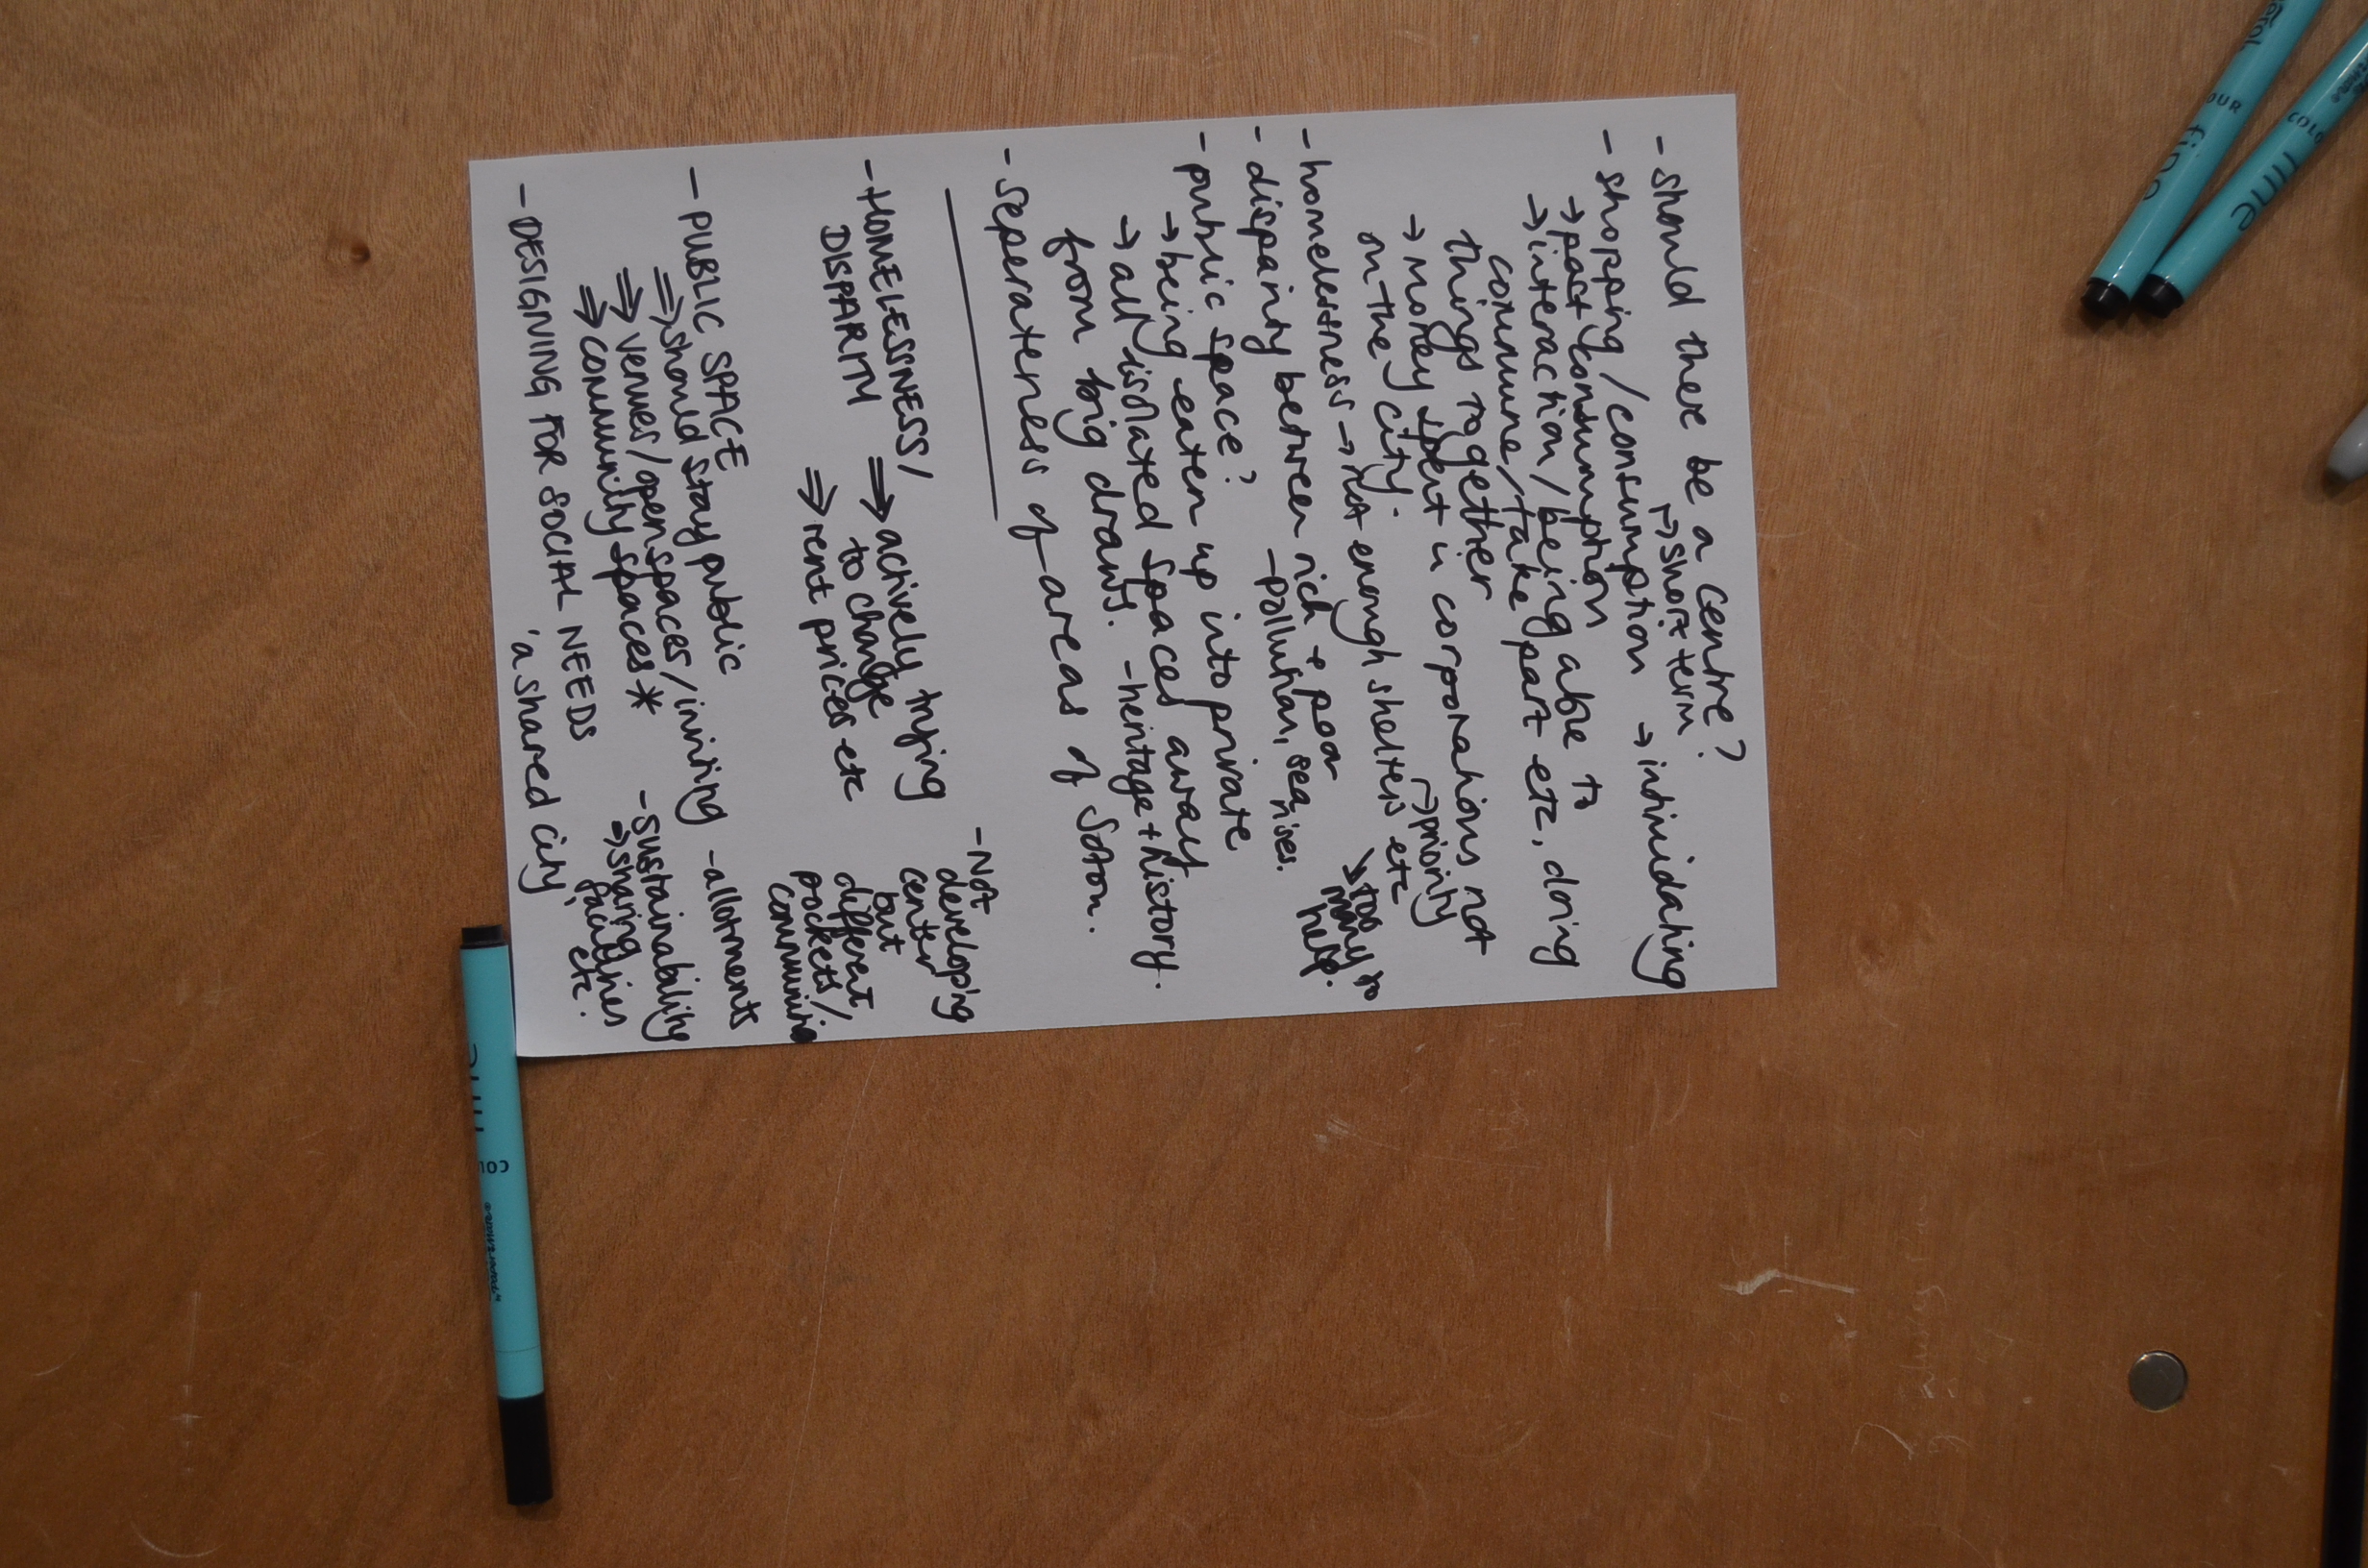 - should there be a centre?
↳ short term
- shopping/consumption → intimidating
→ past consumption
→ interaction/being able to
commune/take part etc, doing
things together
→ money spent in corporations not
on the city.
↳ priority
- homelessness → not enough shelters etc
↘ too many to help.
- disparity between rich + poor
- pollution, sea rises.
- public space?
→ being eaten up into private
→ all isolated spaces away
from big draws. - heritage + history.
- seperateness of areas of Soton.
- HOMELESSNESS/
DISPARITY
⇒ actively trying
to change
⇒ rent prices etc
- Not
developing
center
but
different
pockets/
- PUBLIC SPACE
⇒ should stay public
⇒ venues/open spaces/inviting
⇒ community spaces *
- allotments
- sustainability
→ sharing
facilities
etc.
- DESIGNING FOR SOCIAL NEEDS
'a shared city'
COLOUR
fine
COLO
fine
COL